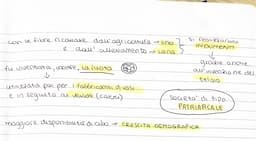 con le fibre ricavate dall'agricoltura → lino
e dall'allevamento → lana
si fabbricarono
INDUMENTI
grazie anche
all'invenzione del
telaio
fu inventata, inoltre, la ruota
utilizzata poi per i fabbricanti di vasi
e in seguito ai veicoli (carri)
società di tipo
PATRIARCALE
maggiore disponibilità di cibo → CRESCITA DEMOGRAFICA